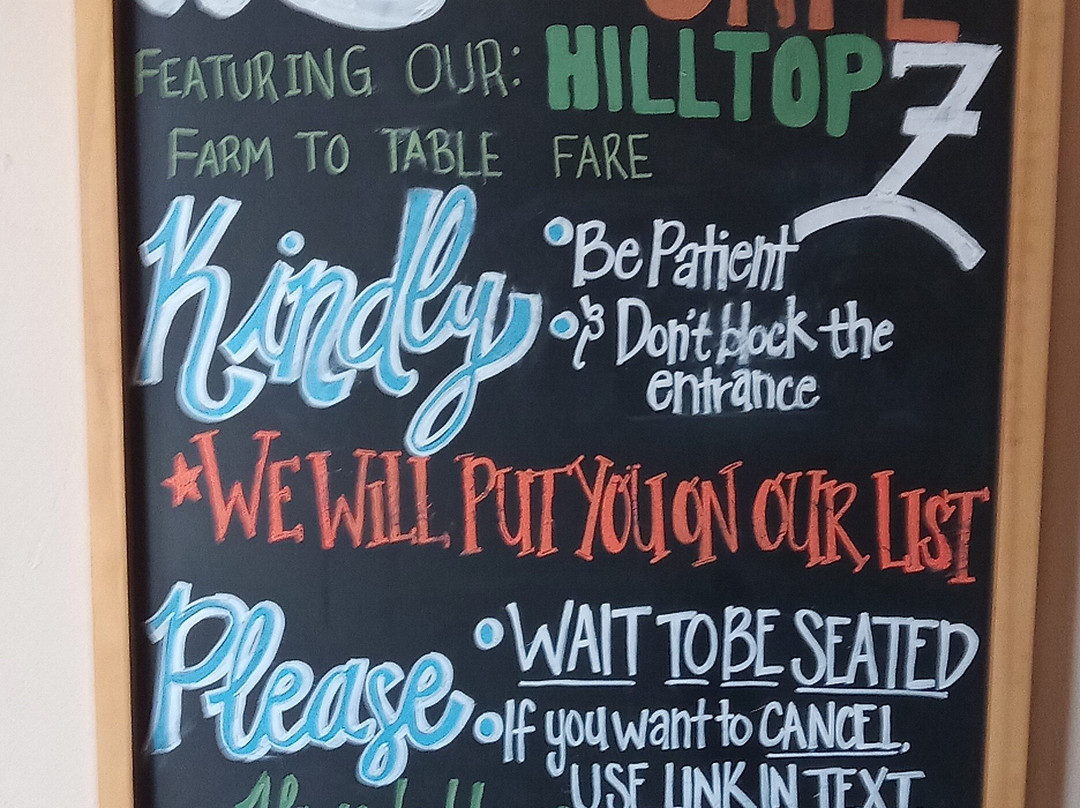 FEATURING OUR: HILLTOP
FARM TO TABLE FARE
Kindly
Be Patient
& Don't block the
entrance
WE WILL PUT YOU ON OUR LIST
Please
WAIT TO BE SEATED
If you want to CANCEL,
USE LINK IN TEXT